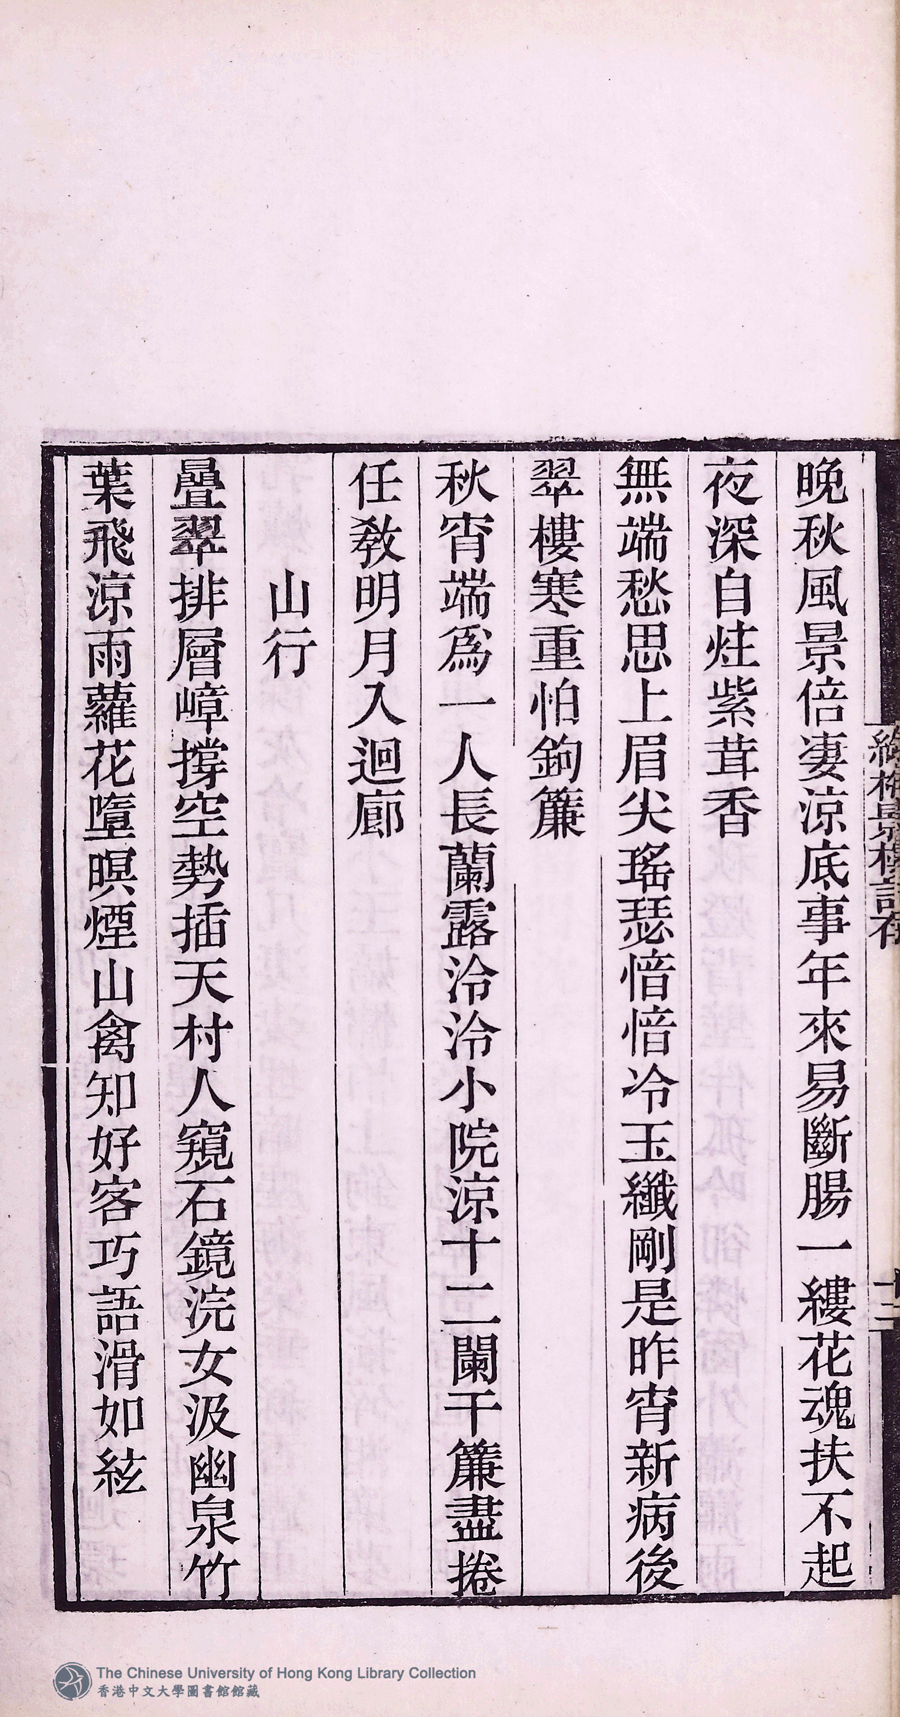 晚秋風景倍凄涼底事年來易斷腸一縷花魂扶不起
夜深自炷紫茸香
無端愁思上眉尖瑤瑟愔愔冷玉纖剛是昨宵新病後
翠樓寒重怕鉤簾
秋宵端爲一人長蘭露泠泠小院涼十二闌干簾盡捲
任教明月入迴廊
山行
疊翠排層嶂撐空勢插天村人窺石鏡浣女汲幽泉竹
葉飛涼雨蘿花墮暝煙山禽知好客巧語滑如絃
梅景樓詩存
十三
The Chinese University of Hong Kong Library Collection
香港中文大學圖書館館藏